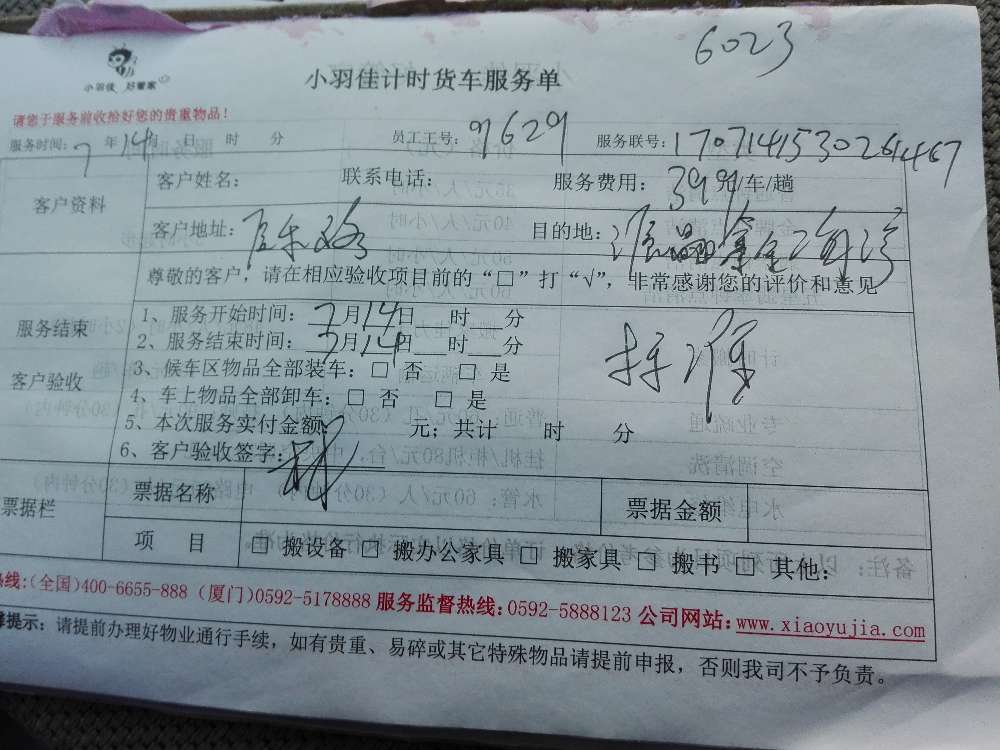 6023
小羽佳 好管家
小羽佳计时货车服务单
请您于服务前收给好您的贵重物品！
服务时间: 7 年 14 月 日 时 分 员工工号: 91629 服务联号: 17071415302614467
客户资料
客户姓名: 联系电话: 服务费用: 399 元/车/趟
客户地址: 目的地:
服务结束
客户验收
尊敬的客户，请在相应验收项目前的“□”打“√”，非常感谢您的评价和意见
1、服务开始时间: 7月14日 时 分
2、服务结束时间: 7月14日 时 分
3、候车区物品全部装车: □ 否 □ 是
4、车上物品全部卸车: □ 否 □ 是
5、本次服务实付金额: 元；共计 时 分
6、客户验收签字:
票据栏
票据名称 票据金额
项 目 □ 搬设备 □ 搬办公家具 □ 搬家具 □ 搬书 □ 其他:
热线:(全国)400-6655-888 (厦门)0592-5178888 服务监督热线:0592-5888123 公司网站:www.xiaoyujia.com
提示: 请提前办理好物业通行手续，如有贵重、易碎或其它特殊物品请提前申报，否则我司不予负责。